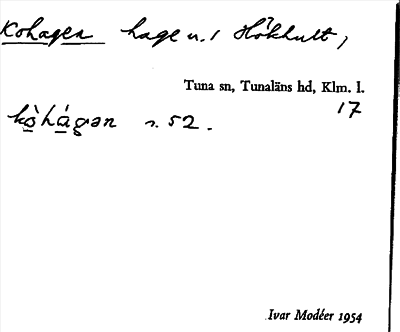 Kohagen hage u. 1 Hökhult,
Tuna sn, Tunaläns hd, Klm. l.
17
kòhágən s. 52.
Ivar Modéer 1954